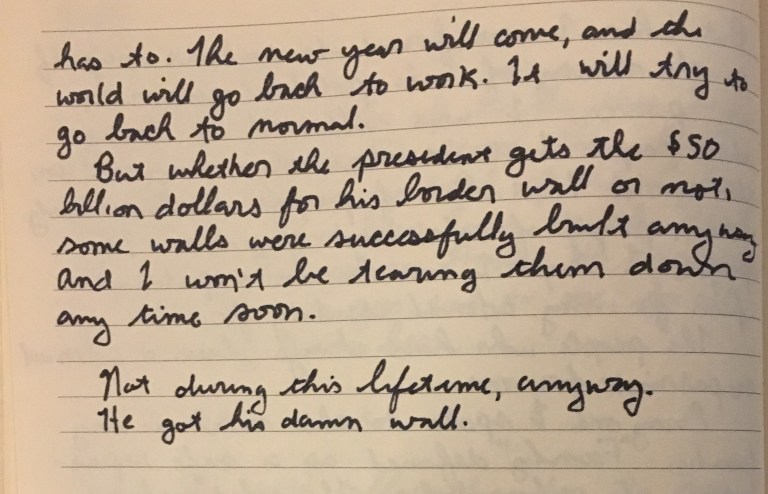 has to. The new year will come, and the
world will go back to work. It will try to
go back to normal.
But whether the president gets the $50
billion dollars for his border wall or not,
some walls were successfully built anyway
and I won't be tearing them down
any time soon.
Not during this lifetime, anyway.
He got his damn wall.